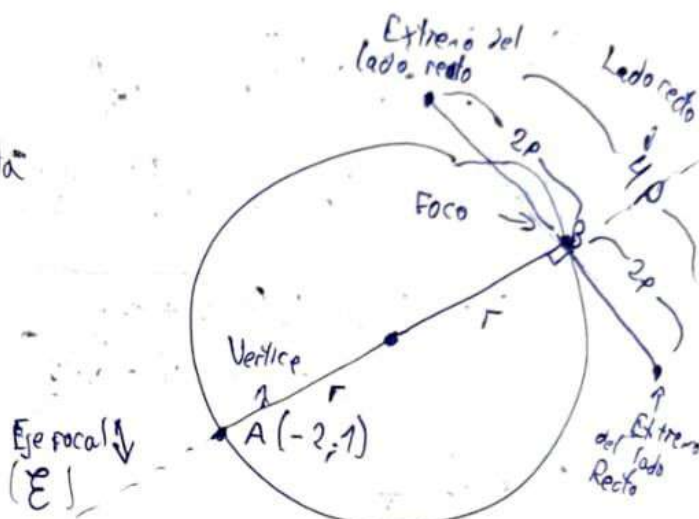 Extremo del
lado recto
Lado recto
4p
2p
Foco
B
2p
r
Vertice
r
A (-2,1)
Eje focal
(E)
Extremo
del lado
Recto